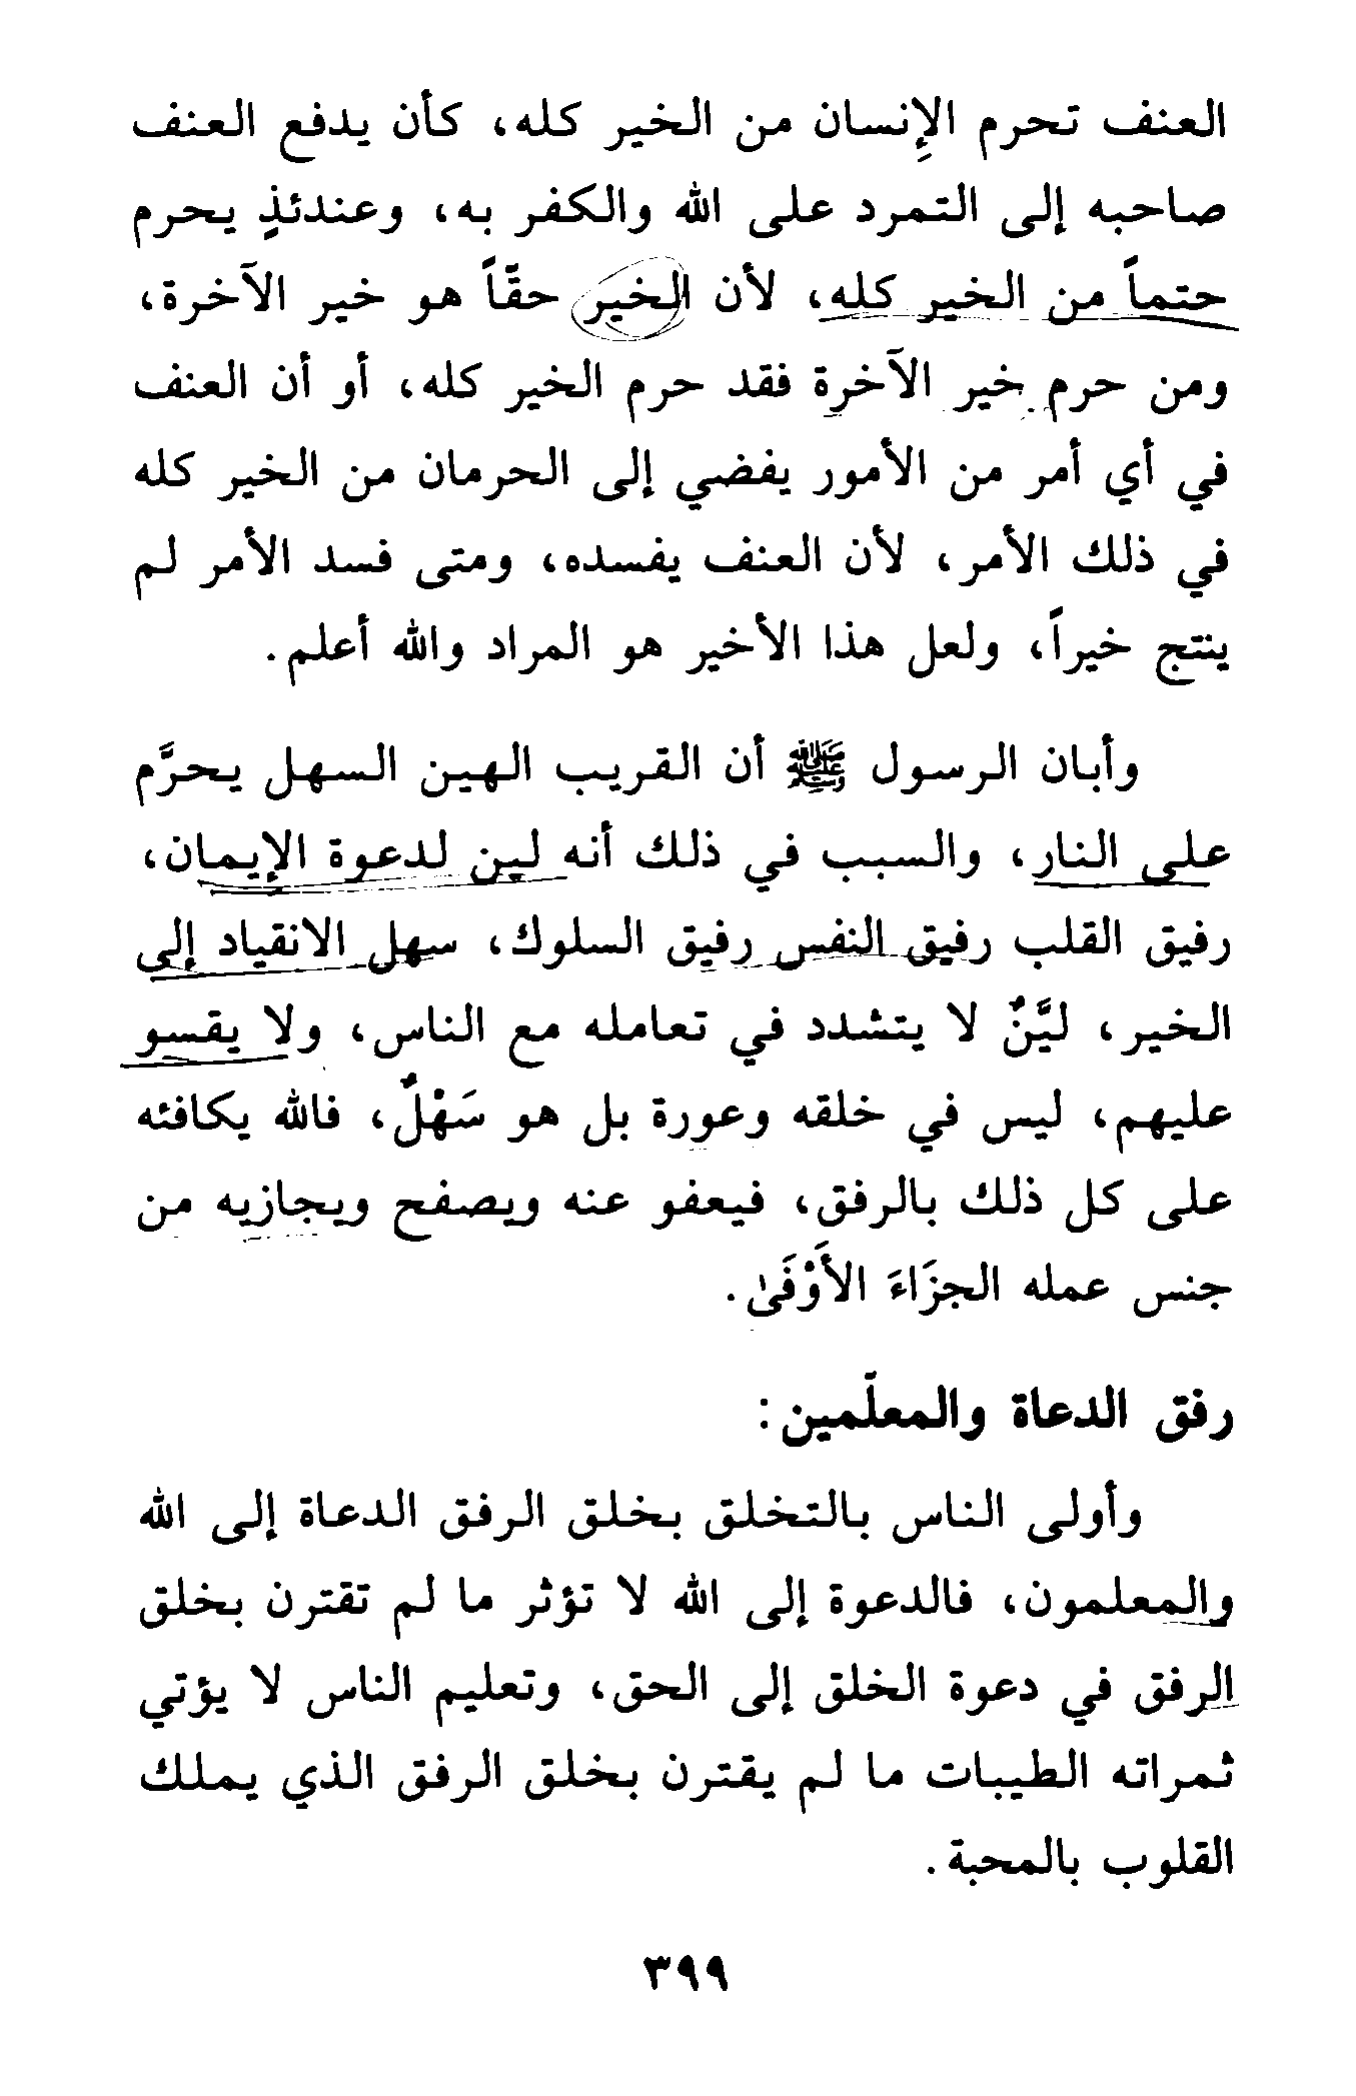 العنف تحرم الإِنسان من الخير كله، كأن يدفع العنف
صاحبه إلى التمرد على الله والكفر به، وعندئذٍ يحرم
حتماً من الخير كله، لأن الخير حقّاً هو خير الآخرة،
ومن حرم خير الآخرة فقد حرم الخير كله، أو أن العنف
في أي أمر من الأمور يفضي إلى الحرمان من الخير كله
في ذلك الأمر، لأن العنف يفسده، ومتى فسد الأمر لم
ينتج خيراً، ولعل هذا الأخير هو المراد والله أعلم.
وأبان الرسول ﷺ أن القريب الهين السهل يحرَّم
على النار، والسبب في ذلك أنه لين لدعوة الإيمان،
رفيق القلب رفيق النفس رفيق السلوك، سهل الانقياد إلى
الخير، ليَّنٌ لا يتشدد في تعامله مع الناس، ولا يقسو
عليهم، ليس في خلقه وعورة بل هو سَهْلٌ، فالله يكافئه
على كل ذلك بالرفق، فيعفو عنه ويصفح ويجازيه من
جنس عمله الجزَاءَ الأَوْفَىٰ.
رفق الدعاة والمعلّمين:
وأولى الناس بالتخلق بخلق الرفق الدعاة إلى الله
والمعلمون، فالدعوة إلى الله لا تؤثر ما لم تقترن بخلق
الرفق في دعوة الخلق إلى الحق، وتعليم الناس لا يؤتي
ثمراته الطيبات ما لم يقترن بخلق الرفق الذي يملك
القلوب بالمحبة.
٣٩٩